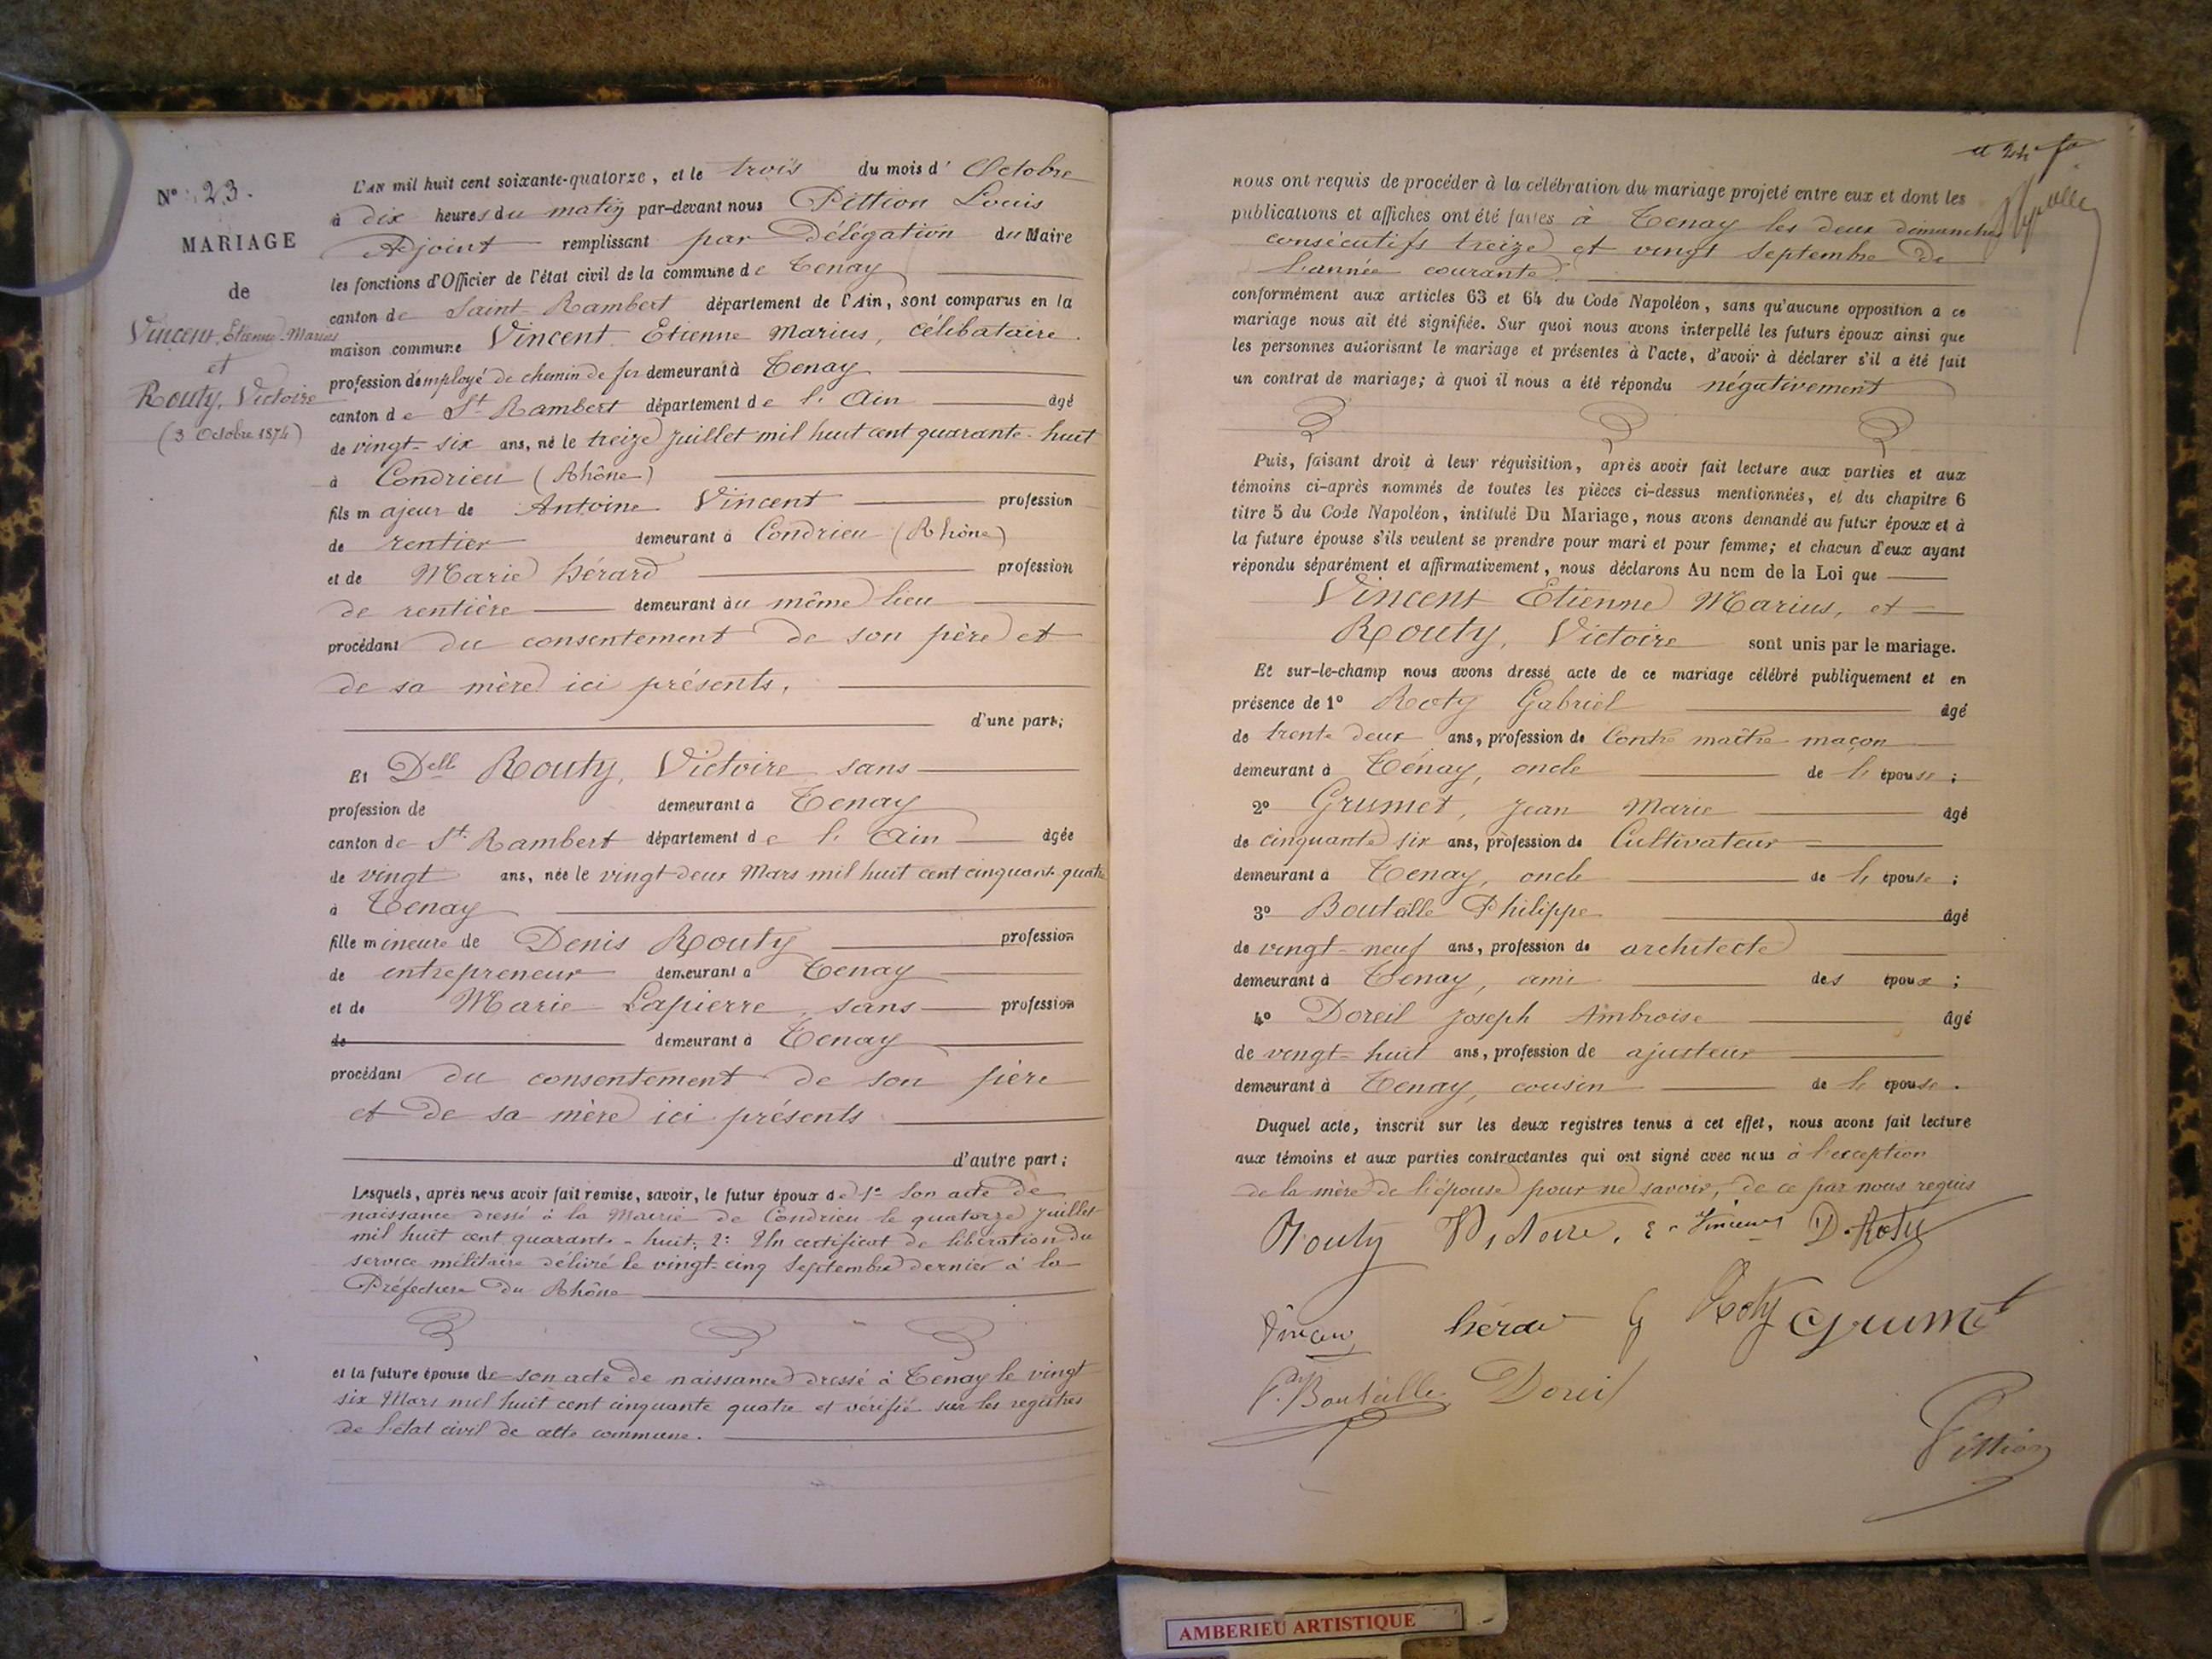 N° 23.
MARIAGE
de
Vincent, Etienne-Marius
et
Routy, Victoire
(3 Octobre 1874)
L'AN mil huit cent soixante-quatorze, et le trois du mois d'Octobre
à dix heures du matin par-devant nous Pittion Louis
Adjoint remplissant par Délégation du Maire
les fonctions d'Officier de l'état civil de la commune de Tenay
canton de Saint-Rambert département de l'Ain, sont comparus en la
maison commune Vincent Etienne Marius, célibataire
profession d'employé de chemin de fer demeurant à Tenay
canton de St Rambert département de l'Ain âgé
de vingt-six ans, né le treize Juillet mil huit cent quarante-huit
à Condrieu (Rhône)
fils majeur de Antoine Vincent profession
de rentier demeurant à Condrieu (Rhône)
et de Marie hérard profession
de rentière demeurant au même lieu
procédant du consentement de son père et
de sa mère ici présents,
d'une part;
Et Delle Routy, Victoire sans
profession de demeurant à Tenay
canton de St Rambert département de l'Ain âgée
de vingt ans, née le vingt deux Mars mil huit cent cinquante quatre
à Tenay
fille mineure de Denis Routy profession
de entrepreneur demeurant à Tenay
et de Marie Lapierre, sans profession
de demeurant à Tenay
procédant du consentement de son père
et de sa mère ici présents
d'autre part;
Lesquels, après nous avoir fait remise, savoir, le futur époux de 1° Son acte de
naissance dressé à la Mairie de Condrieu le quatorze Juillet
mil huit cent quarante-huit; 2° Un certificat de libération du
service militaire délivré le vingt-cinq Septembre dernier à la
Préfecture du Rhône
et la future épouse de son acte de naissance dressé à Tenay le vingt
six Mars mil huit cent cinquante quatre et vérifié sur les registres
de l'état civil de cette commune.
nous ont requis de procéder à la célébration du mariage projeté entre eux et dont les
publications et affiches ont été faites à Tenay les deux dimanches
consécutifs treize et vingt Septembre de
l'année courante
conformément aux articles 63 et 64 du Code Napoléon, sans qu'aucune opposition a ce
mariage nous ait été signifiée. Sur quoi nous avons interpellé les futurs époux ainsi que
les personnes autorisant le mariage et présentes à l'acte, d'avoir à déclarer s'il a été fait
un contrat de mariage; à quoi il nous a été répondu négativement
Puis, faisant droit à leur réquisition, après avoir fait lecture aux parties et aux
témoins ci-après nommés de toutes les pièces ci-dessus mentionnées, et du chapitre 6
titre 5 du Code Napoléon, intitulé Du Mariage, nous avons demandé au futur époux et à
la future épouse s'ils veulent se prendre pour mari et pour femme; et chacun d'eux ayant
répondu séparément et affirmativement, nous déclarons Au nom de la Loi que
Vincent Etienne Marius, et
Routy, Victoire sont unis par le mariage.
Et sur-le-champ nous avons dressé acte de ce mariage célébré publiquement et en
présence de 1° Roty Gabriel âgé
de trente deux ans, profession de Contre maître maçon
demeurant à Tenay, oncle de l'épouse;
2° Grumet, Jean Marie âgé
de cinquante six ans, profession de Cultivateur
demeurant à Tenay, oncle de l'épouse;
3° Bouteille Philippe âgé
de vingt-neuf ans, profession de architecte
demeurant à Tenay, ami des époux;
4° Doreil Joseph Ambroise âgé
de vingt-huit ans, profession de ajusteur
demeurant à Tenay, cousin de l'épouse.
Duquel acte, inscrit sur les deux registres tenus à cet effet, nous avons fait lecture
aux témoins et aux parties contractantes qui ont signé avec nous à l'exception
de la mère de l'épouse pour ne savoir, de ce par nous requis
Routy Victoire, E Vincent D. Roty
Vincent hérar G Roty Grumet
P. Bouteille Doreil
Pittion
AMBERIEU ARTISTIQUE